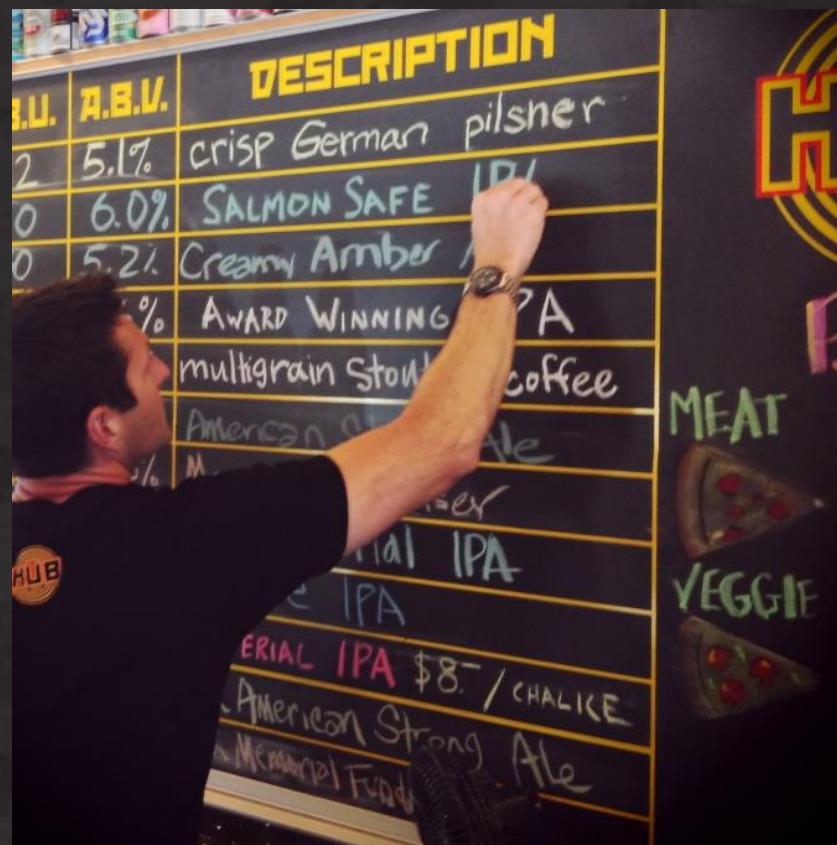 A.B.V. DESCRIPTION
5.1% crisp German pilsner
6.0% SALMON SAFE
5.2% Creamy Amber
% AWARD WINNING
multigrain Stout coffee
American Ale
%
IPA
IPA
ERIAL IPA $8.- / CHALICE
American Strong Ale
Memorial Fund
MEAT
VEGGIE
HUB